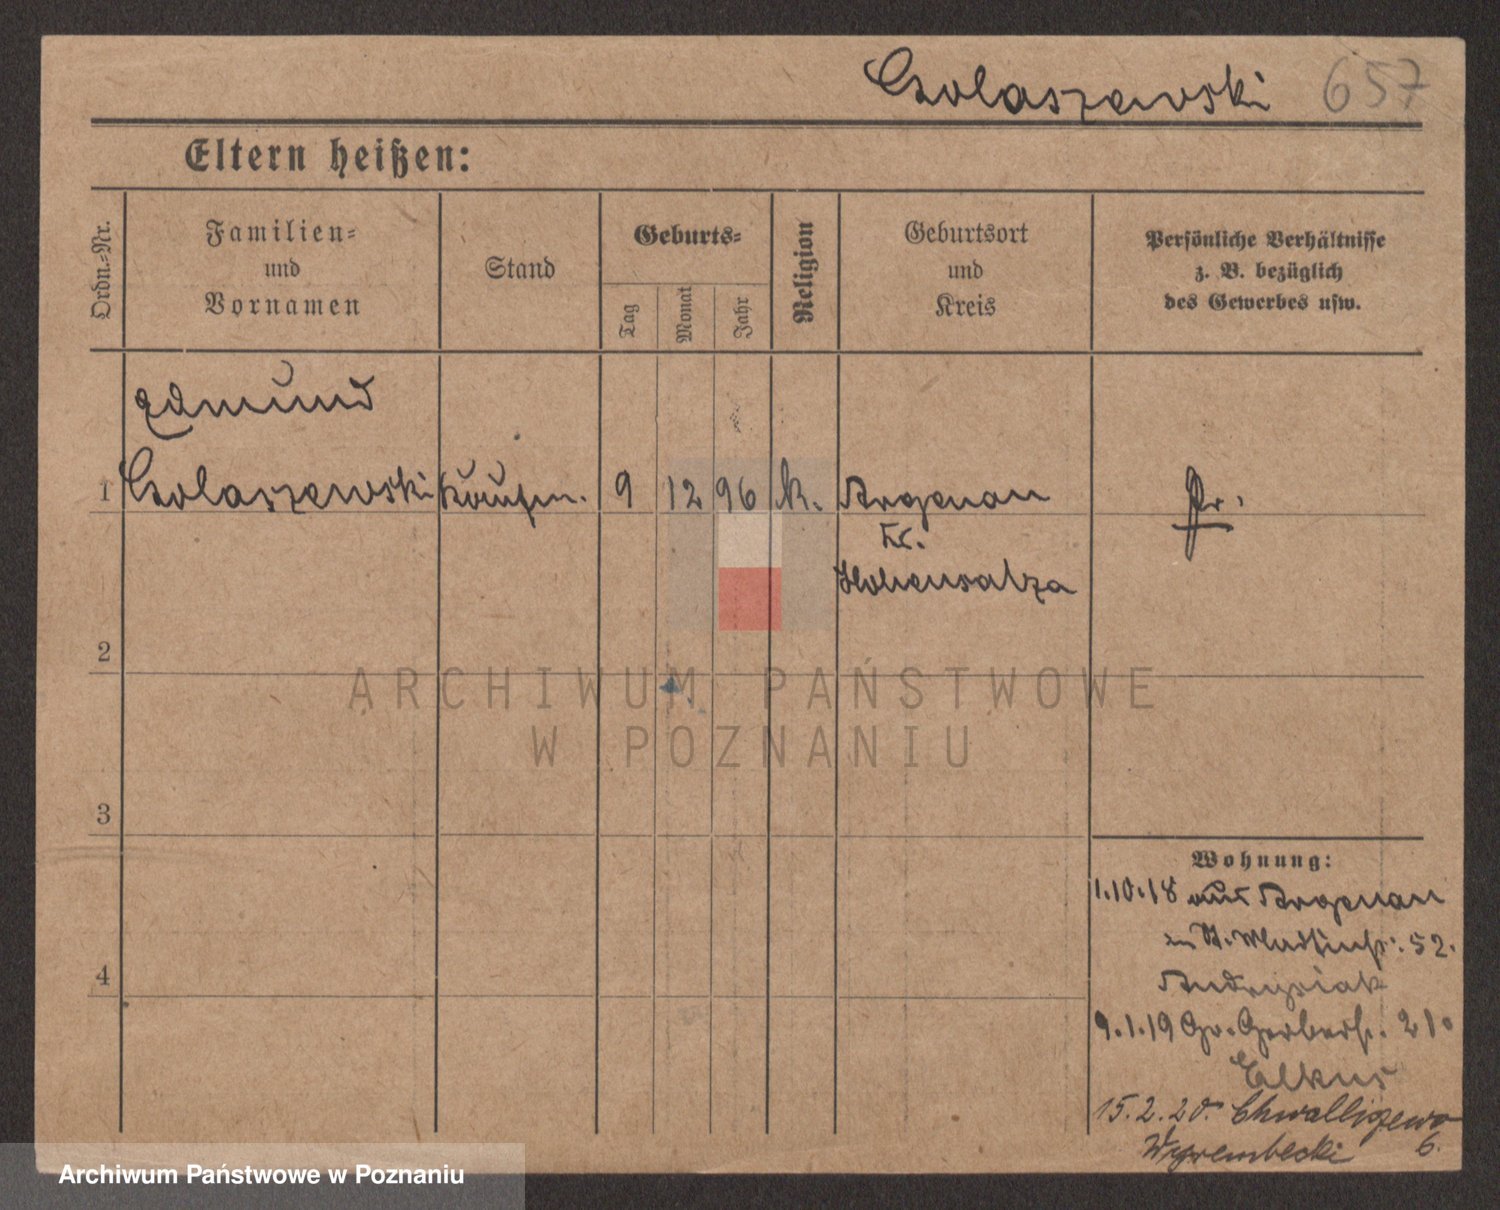 Golaszewski 657
Eltern heißen:
Ordn.-Nr.
Familien-
und
Vornamen
Stand
Geburts-
Tag
Monat
Jahr
Religion
Geburtsort
und
Kreis
Persönliche Verhältnisse
z. B. bezüglich
des Gewerbes usw.
Edmund
1 Golaszewski Kaufm. 9 12 96 k. Argenau Pr.
Kr.
Hohensalza
2
3
4
Wohnung:
1.10.18 aus Argenau
52.
Andrysiak
9.1.19 Gr. Gerberstr. 21
Elkus
15.2.20. Chwalliszewo
Wyrembecki 6.
ARCHIWUM PAŃSTWOWE
W POZNANIU
Archiwum Państwowe w Poznaniu